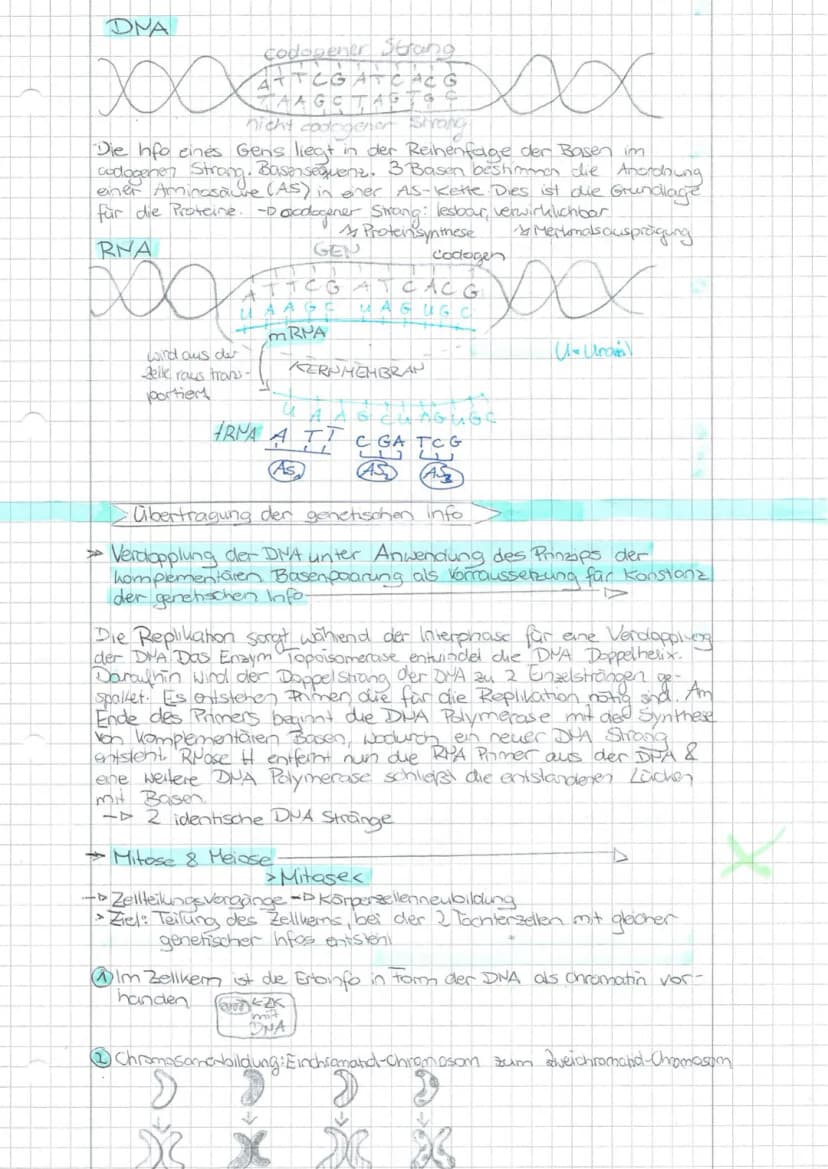 DNA
codogener Strang
A T T C G A T C A C G
T A A G C T A G T G C
nicht codogener Strang
Die Info eines Gens liegt in der Reihenfolge der Basen im
codogenen Strang. Basensequenz. 3 Basen bestimmen die Anordnung
einer Aminosäure (AS) in einer AS-Kette Dies ist die Grundlage
für die Proteine. -> codogener Strang: lesbar, verwirklichbar
↳ Proteinsynthese ↳ Merkmalsausprägung
RNA
GEN
codogen
A T T C G A T C A C G
U A A G C U A G U G C
mRNA
wird aus der
Zelle raus trans-
portiert
KERNMEMBRAN
U A A G C U A G U G C
tRNA A T T C G A T C G
AS1 AS2 AS3
Übertragung der genetischen Info
» Verdopplung der DNA unter Anwendung des Prinzips der
komplementären Basenpaarung als Vorraussetzung für Konstanz
der genetischen Info
Die Replikation sorgt während der Interphase für eine Verdopplung
der DNA. Das Enzym Topoisomerase entwindet die DNA Doppelhelix.
Daraufhin wird der Doppelstrang der DNA zu 2 Einzelsträngen ge-
spaltet. Es entstehen Primer die für die Replikation nötig sind. Am
Ende des Primers beginnt die DNA Polymerase mit der Synthese
von komplementären Basen, wodurch ein neuer DNA Strang
entsteht. RNase H entfernt nun die RNA Primer aus der DNA &
eine weitere DNA Polymerase schließt die entstandenen Lücken
mit Basen.
-> 2 identische DNA Stränge
→ Mitose & Meiose
>Mitose<
-> Zellteilungsvorgänge -> Körperzellenneubildung
> Ziel: Teilung des Zellkerns, bei der 2 Tochterzellen mit gleicher
genetischer Infos entsteht
1 Im Zellkern ist die Erbinfo in Form der DNA als Chromatin vor-
handen
<-ZK
mit
DNA
2 Chromosomenbildung: Einchromatid-Chromosom zum Zweichromatid-Chromosom